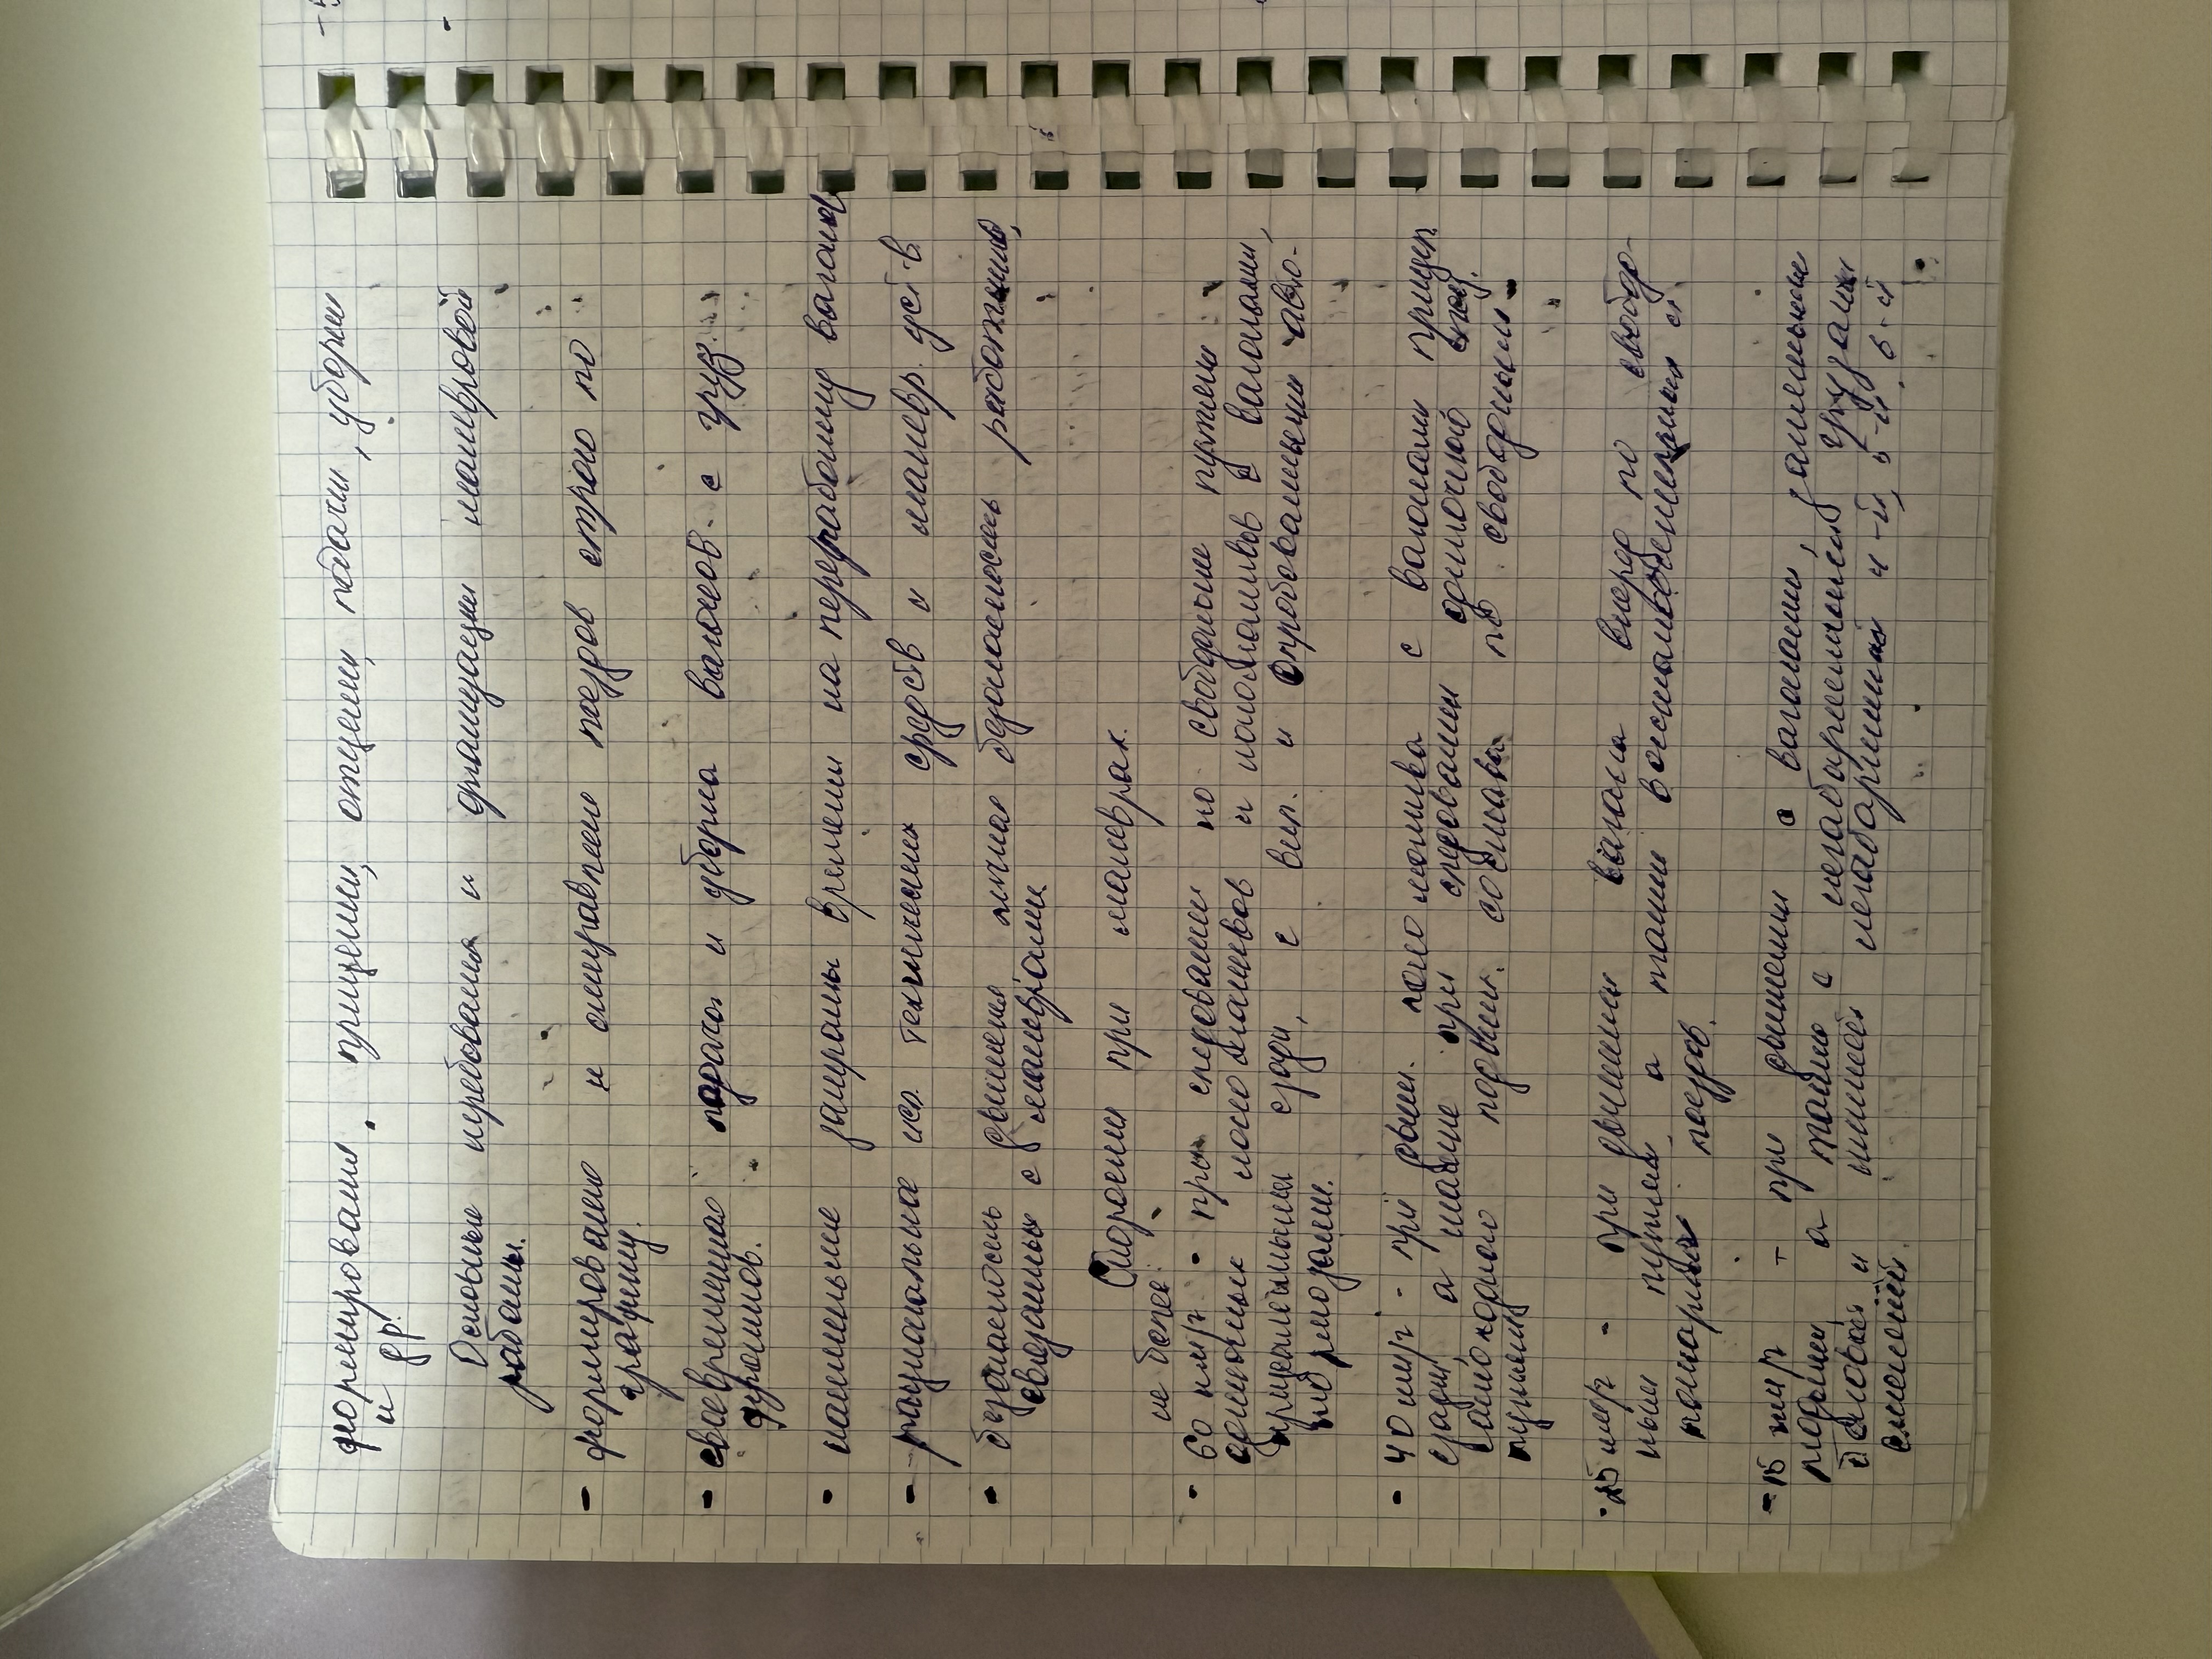 формирования, прицепки, отцепки, подачи, уборки
и др.
Основные требования и организации маневровой
работы.
- формирование и отправление поездов строго по
графику.
- своевременная подача и уборка вагонов с груз.
фронтов.
- наименьшие затраты времени на переработку вагона
- рациональное исп. технических средств и маневр. уст-в
- безопасность движения, личная безопасность работников,
связанных с маневрами
Скорости при маневрах.
не более:
- 60 км/ч - при следовании по свободным путям
одиночных локомотивов и локомотивов с вагонами,
прицепленными сзади, с вкл. и опробованными авто-
тормозами.
- 40 км/ч - при движ. локомотива с вагонами прицеп.
сзади, а также при следовании одиночной спец.
самоходного подвиж. состава по свободным
путям
- 25 км/ч - при движении вагонами вперед по свобод-
ным путям, а также восстановительных и
пожарных поездов.
- 15 км/ч - при движении с вагонами, занятыми
людьми, а также с негабаритными грузами
боковой и нижней негабаритности 4-й, 5-й, 6-й
степеней.